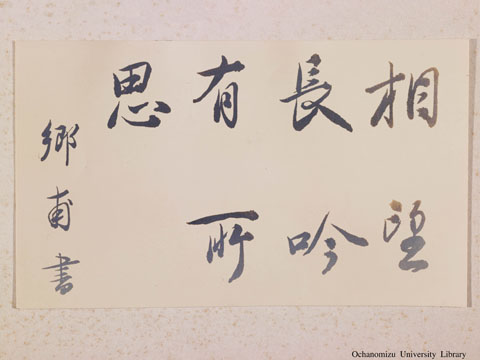 相望
長吟
有所
思
郷甫書
Ochanomizu University Library